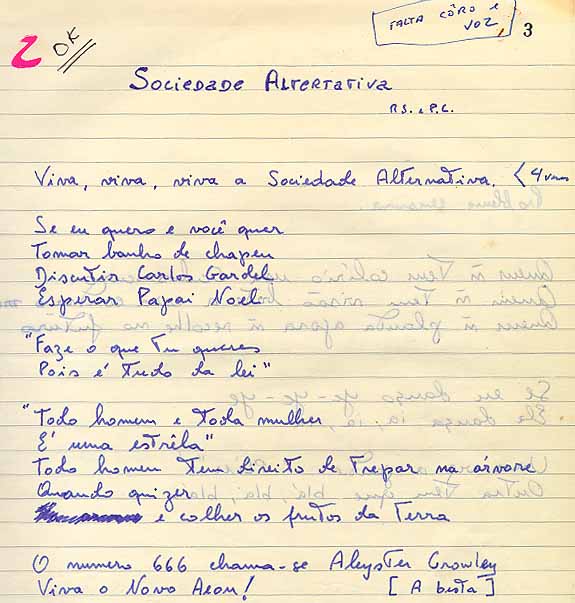 FALTA CÔRO E
VOZ
3
2 OK
SOCIEDADE ALTERTATIVA
R.S. e P.C.
Viva, viva, viva a Sociedade Alternativa. < 4 vezes
Se eu quero e você quer
Tomar banho de chapeu
Discutir Carlos Gardel
Esperar Papai Noel
"Faze o que Tu queres
Pois é Tudo da lei"
"Todo homem e Toda mulher
É uma estrêla"
Todo homem Tem direito de Trepar na árvore
Quando quizer
e colher os frutos da Terra
O numero 666 chama-se Aleyster Crowley
Viva o Novo Aeon! [A besta]